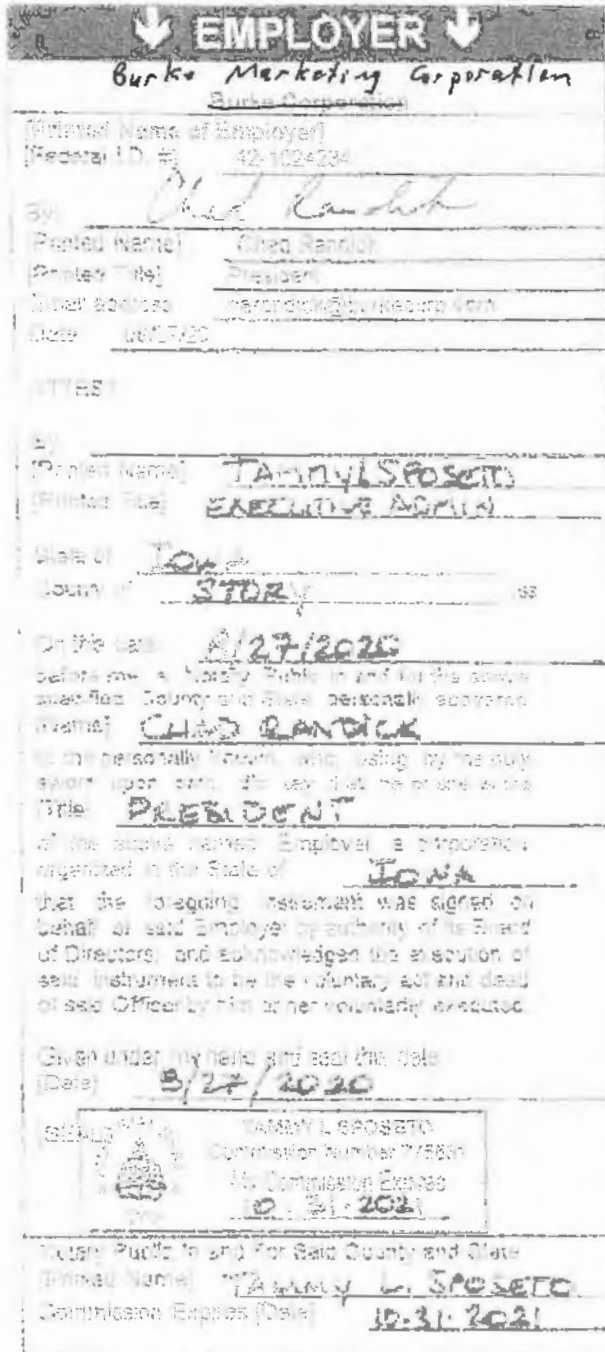 EMPLOYER
Burke Marketing Corporation
Burke Corporation
[Printed Name of Employer]
[Federal I.D. #] 42-1024234
By:
[Printed Name] Chad Randick
[Printed Title] President
Email address
Date
ATTEST
By
[Printed Name] TAMMY L SPOSETO
[Printed Title] EXECUTIVE ADMIN
State of Iowa
County of STORY ss
On this date 8/27/2020
before me, a Notary Public in and for the above
specified County and State personally appeared
[Name] CHAD RANDICK
to me personally known, who, being by me duly
sworn upon oath, did say that he or she is the
[Title] PRESIDENT
of the above named Employer, a corporation
organized in the State of IOWA
that the foregoing instrument was signed on
behalf of said Employer by authority of its Board
of Directors, and acknowledged the execution of
said instrument to be the voluntary act and deed
of said Officer by him or her voluntarily executed.
Given under my hand and seal this date
[Date] 8/27/2020
[SEAL] TAMMY L SPOSETO
Commission Number
My Commission Expires
10-31-2021
Notary Public In and For Said County and State
[Printed Name] TAMMY L. SPOSETO
Commission Expires [Date] 10.31.2021